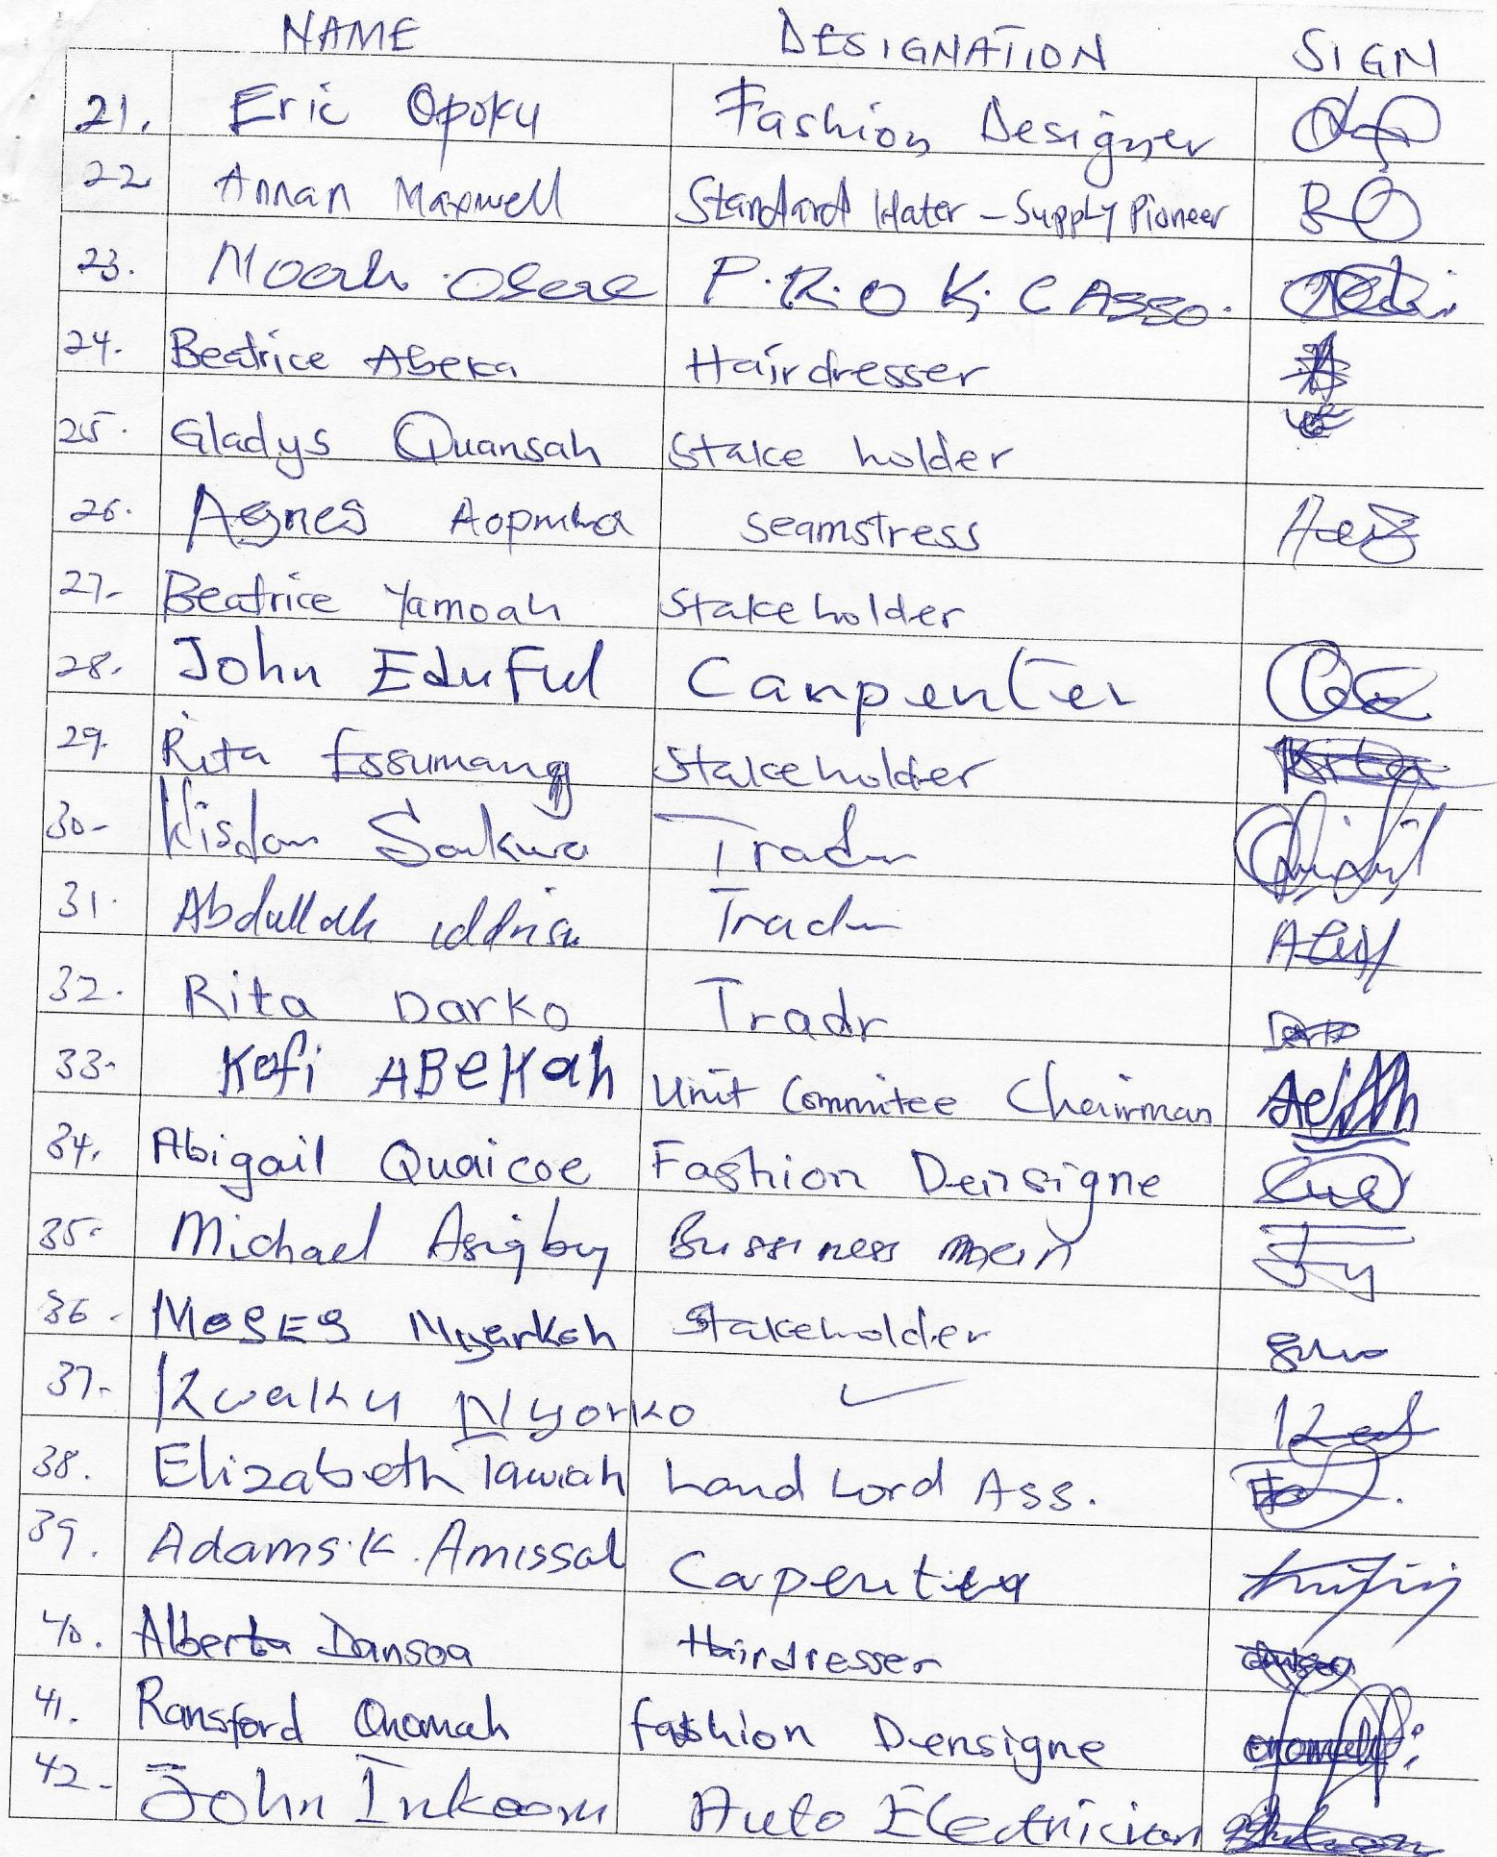 NAME DESIGNATION SIGN
21. Eric Opoku Fashion Designer
22 Annan Maxwell Standard Water - Supply Pioneer
23. Noah Osae P.R.O K. C ASSO.
24. Beatrice Abeka Hairdresser
25. Gladys Quansah Stake holder
26. Agnes seamstress
27- Beatrice Yamoah Stakeholder
28. John Eduful Carpenter
29. Rita Essumang Stakeholder Rita
30- Wisdom Sakwa Trader
31. Abdullah iddrisu Trader
32. Rita Darko Tradr Darko
33- Kofi ABEKah Unit Commitee Chairman
34. Abigail Quaicoe Fashion Densigne
35- Michael Asigby Bussiness man
36- MOSES Nyarkoh Stakeholder
37- Kwaku Nyorko ✓
38. Elizabeth Tawiah Land Lord Ass.
39. Adams.K.Amissah Carpenter
40. Alberta Dansoa Hairdresser
41. Ransford Onomah fashion Densigne
42- John Inkoom Auto Electrician